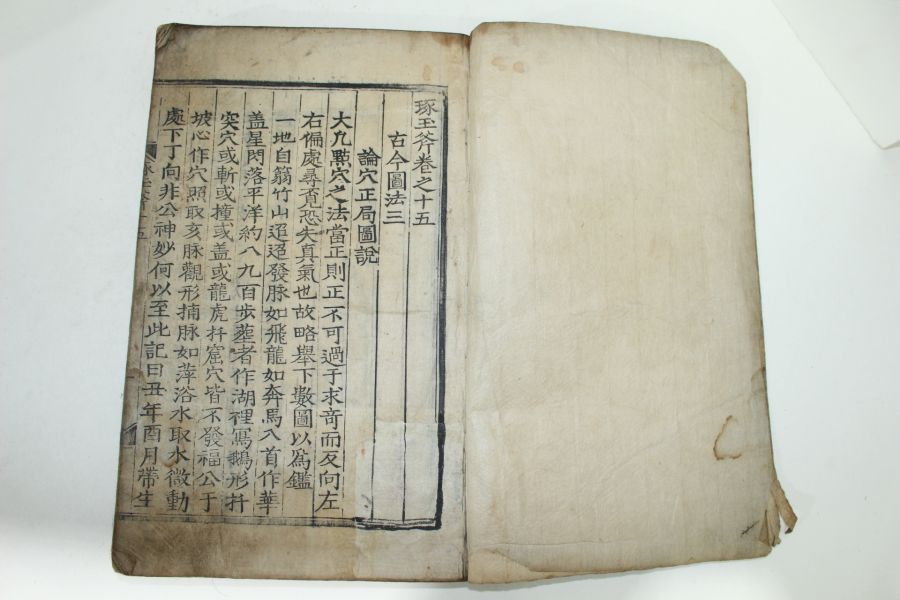 琢玉斧卷之十五
古今圖法三
論穴正局圖說
大凢點穴之法當正則正不可過于求竒而反向左
右偏處尋覔恐失真氣也故略舉下數圖以為鑑
一地自蒻竹山迢迢發脉如飛龍如奔馬入首作華
盖星閃落平洋約八九百步葬者作湖裡寫鵝形扦
突穴或斬或撞或盖或龍虎扦窟穴皆不發福公于
坡心作穴照取亥脉觀形捕脉如萍浴水取水微動
處下丁向非公神妙何以至此記曰丑年酉月帶生